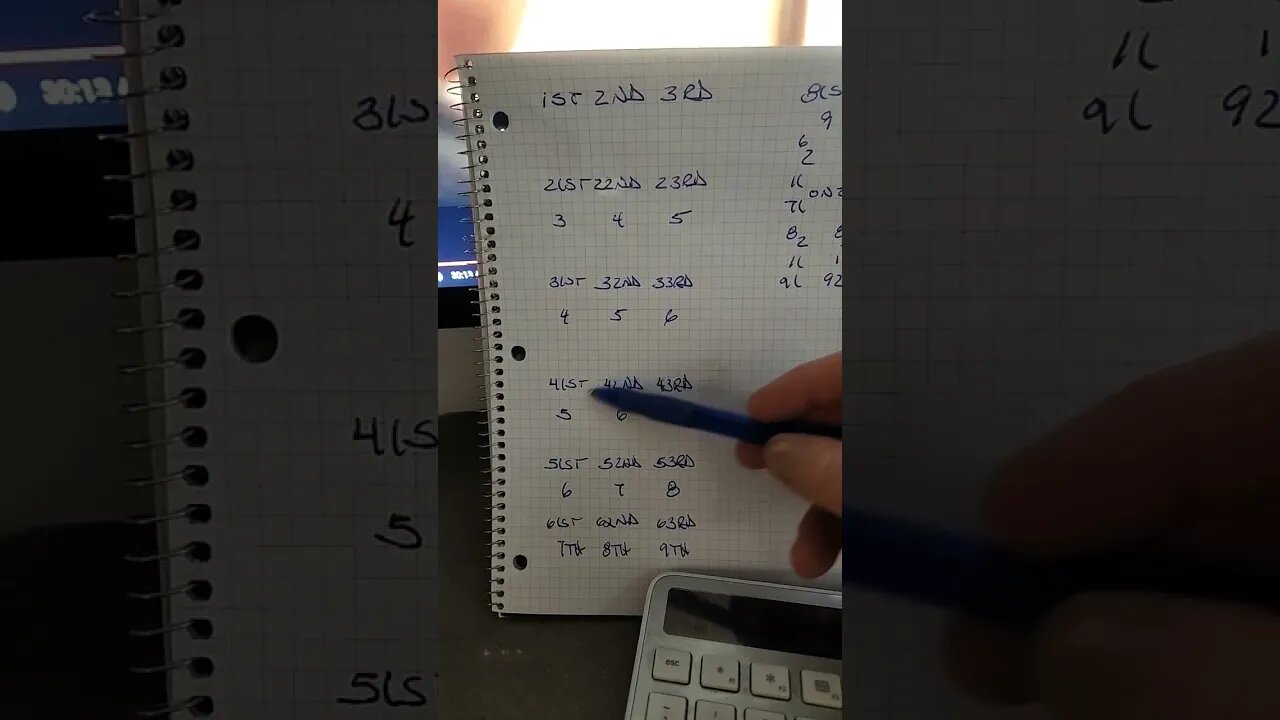 1ST 2ND 3RD
21ST 22ND 23RD
3 4 5
31ST 32ND 33RD
4 5 6
41ST 42ND 43RD
5 6
51ST 52ND 53RD
6 7 8
61ST 62ND 63RD
7TH 8TH 9TH
9
6
2
11
71
82
11 1
91 92
esc